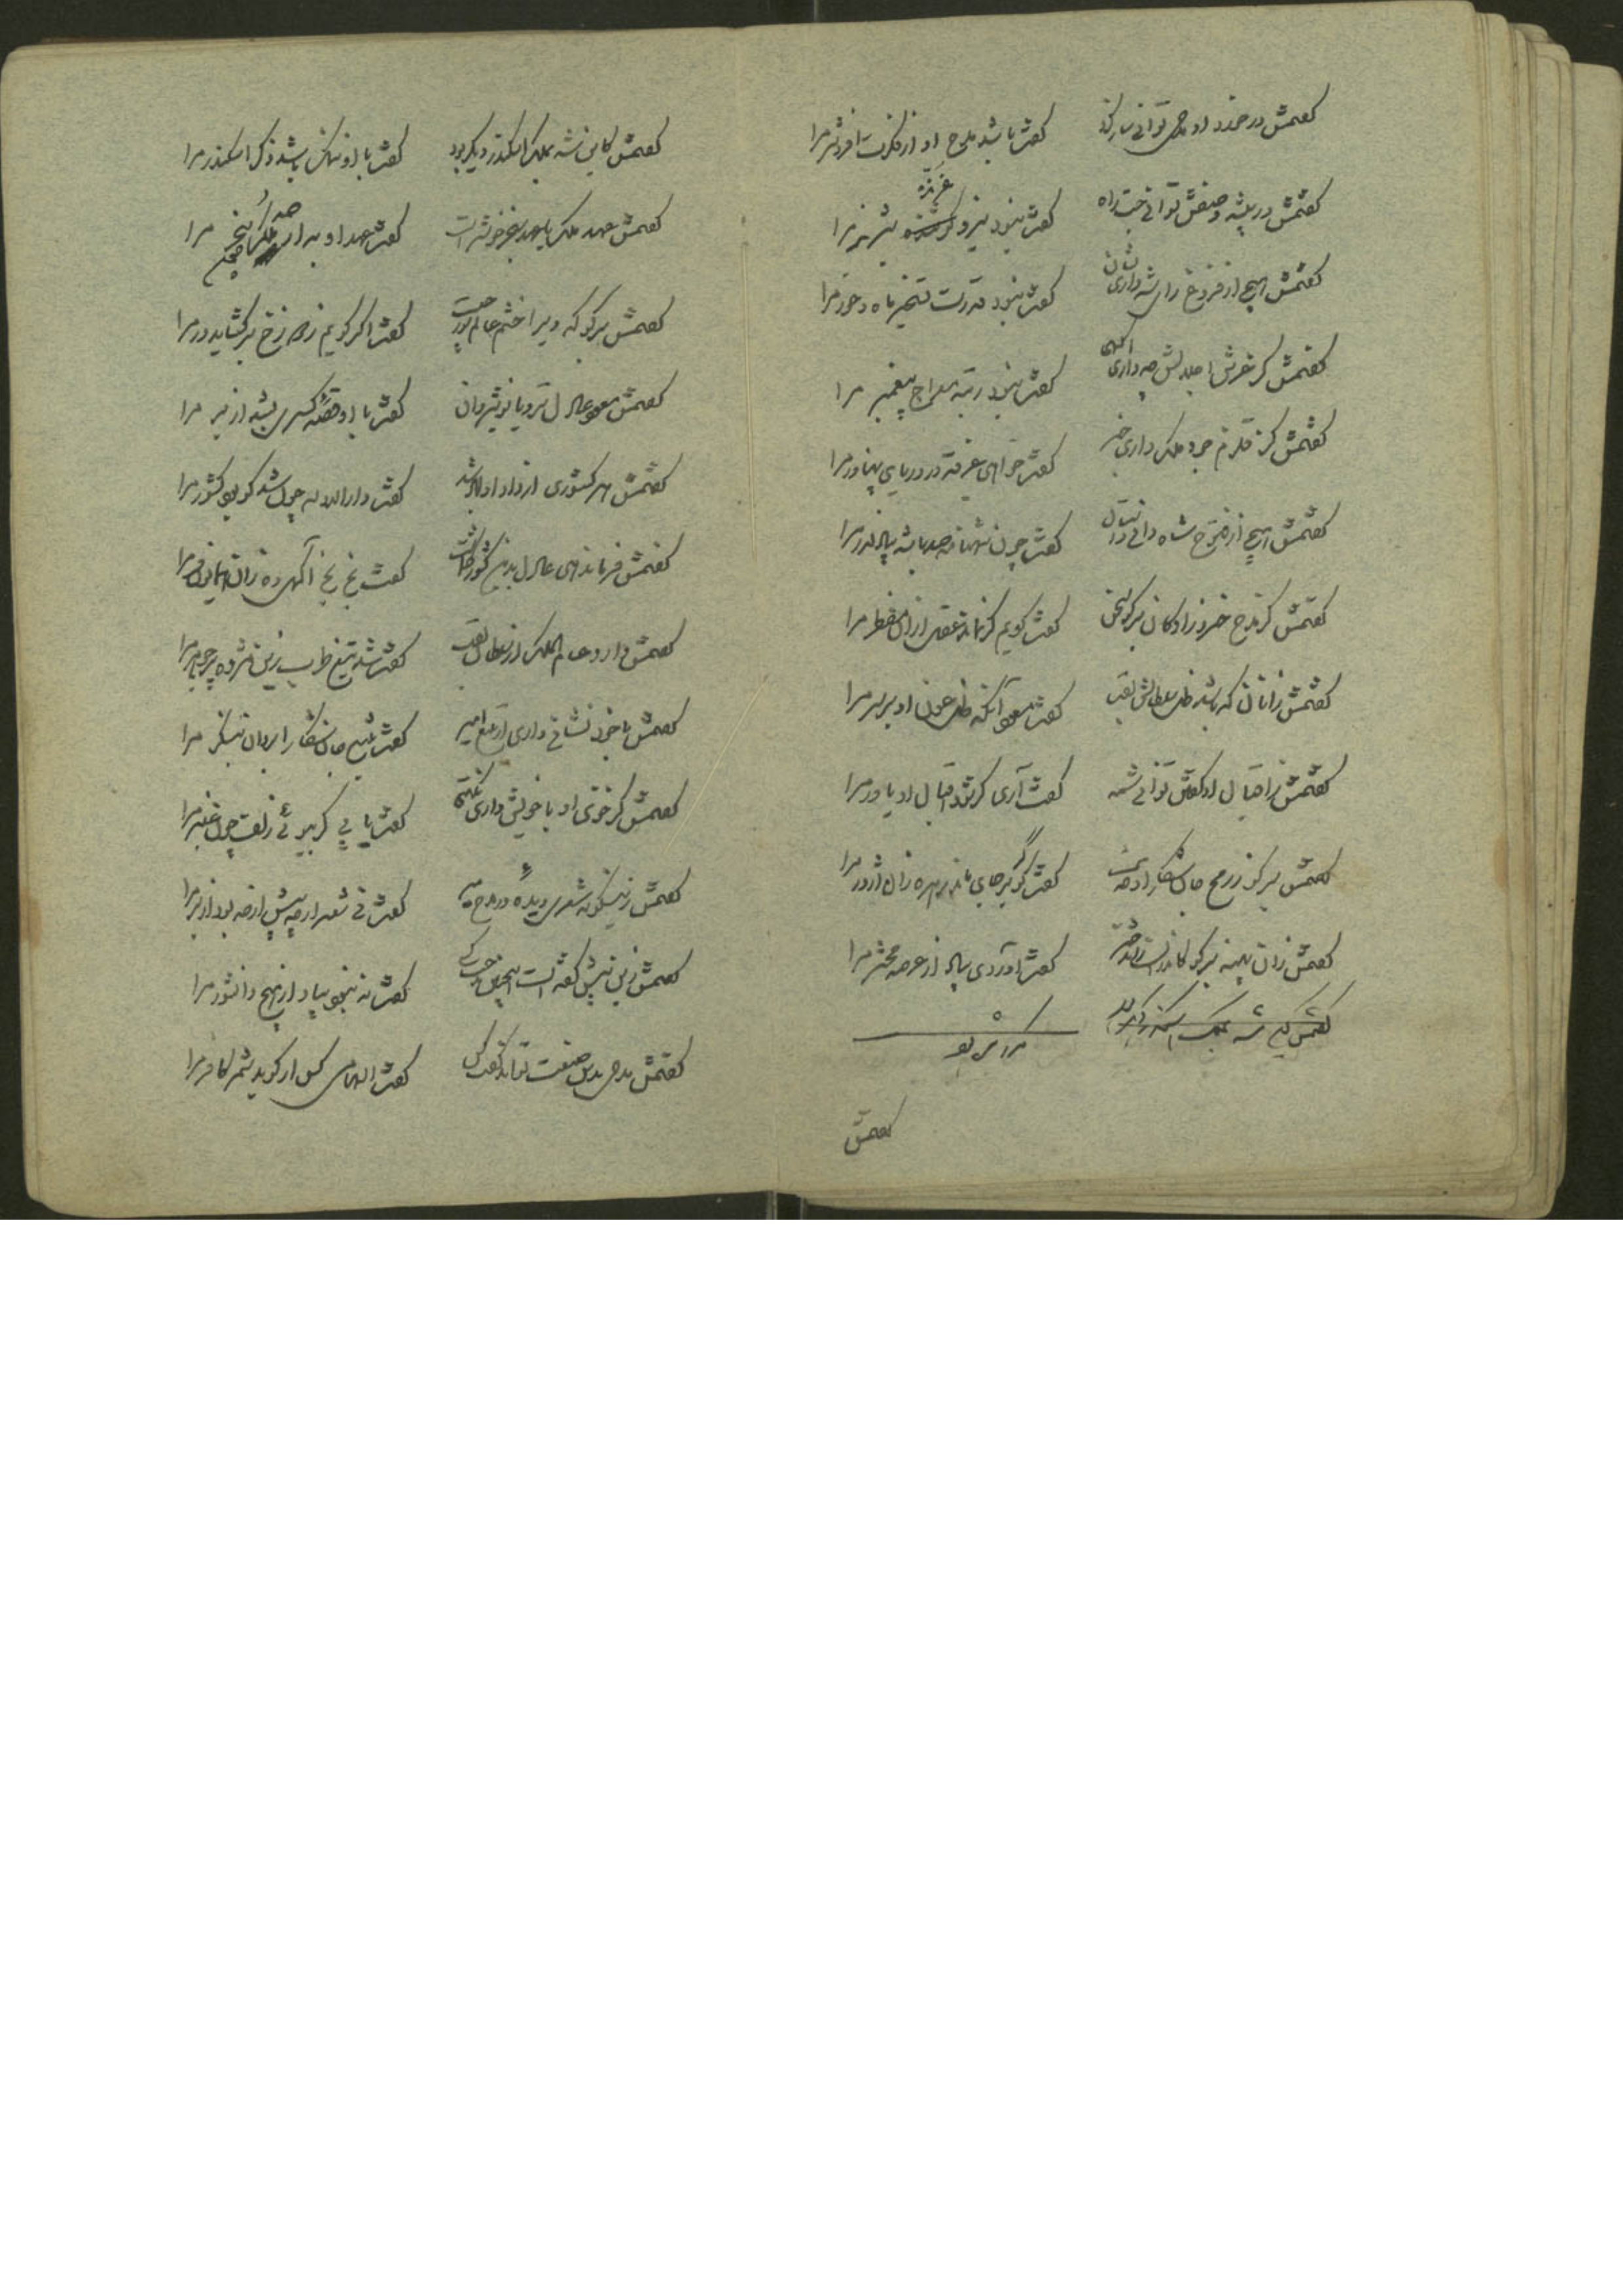 گفتمش در خورد او مدحی توانی ساز کرد گفت باشد مدح او از فکرت افزونتر مرا
گفتمش در بیشه وصفش توانی جست راه گفت نبود نیروی غریده شیر نر مرا
گفتمش هیچ از فروغ رای شه داری نشان گفت نبود قدرت تسخیر ماه و خور مرا
گفتمش کز عرش اجلالش چه داری آگهی گفت نبود رتبه معراج پیغمبر مرا
گفتمش کز قلزم جود ملک داری خبر گفت خواهی غرقه در دریای پهناور مرا
گفتمش هیچ از فتوح شاه دانی داستان گفت چون شهنامه صد باشد ببالا در مرا
گفتمش کز مدح خسرو زادگان برگو سخن گفت گویم گر نماند عقل از آن مضطر مرا
گفتمش زانان که باشد ظل سلطانش لقب گفت آنکه ظل عون او بر سر مرا
گفتمش ز اقبال او گفتن توانی شمه گفت آری گر شود اقبال او یاور مرا
گفتمش برگو ز رمح جان شکار او گفت گو بر جای ماند زهره زان اژدر مرا
گفتمش زان پهنه برگو کاندر گفت آوردی بیاد از عرصه محشر مرا
گفتمش کاین شه بملک اسکندر دیگر بود
مرا شو
گفتمش
گفتمش کاین شه بملک اسکندر دیگر بود گفت با او ننگ باشد ذکر اسکندر مرا
گفتمش عهد ملک یا عهد سنجر خوشتر است گفت عهد او به از صد ملک سنجر مرا
گفتمش برگو که ویرا خشم عالم سوز چیست گفت اگر گویم ز دوزخ برگشاید در مرا
گفتمش عدل وی یا نوشیروان گفت با او قصه کسری بشد از بر مرا
گفتمش هر کشوری از داد او آباد شد گفت دارد از چه چون شد گو بهر کشور مرا
گفتمش فرماندهی عادل بدین کشور گماشت گفت بخ بخ آگهی ده زان همایون فر مرا
گفتمش دارد حسام الملک از سلطان لقب گفت شد تیغ طرب زین مژده پر جوهر مرا
گفتمش با خود نشانی داری از تیغ امیر گفت تیغ جان شکار ابروان بنگر مرا
گفتمش کز خوی او با خویش داری نکهتی گفت یابی گر ببوئی زلف چون عنبر مرا
گفتمش زینگونه شعری دیده در مدح میر گفت نی شعر ار چه بیش از صد بود از بر مرا
گفتمش زین پیش گفته است اینچنین مدحت کسی گفت نه نبود بیاد از هیچ دانشور مرا
گفتمش مدحی بدین صنعت تواند گفت کس گفت الهامی کس ار گوید شمر کافر مرا